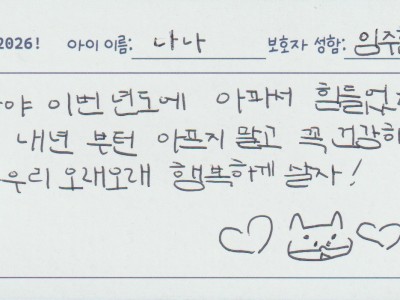 2026! 아이 이름: 나나 보호자 성함: 임주
야 이번 년도에 아파서 힘들었
내년 부턴 아프지 말고 꼭 건강하
우리 오래오래 행복하게 살자!